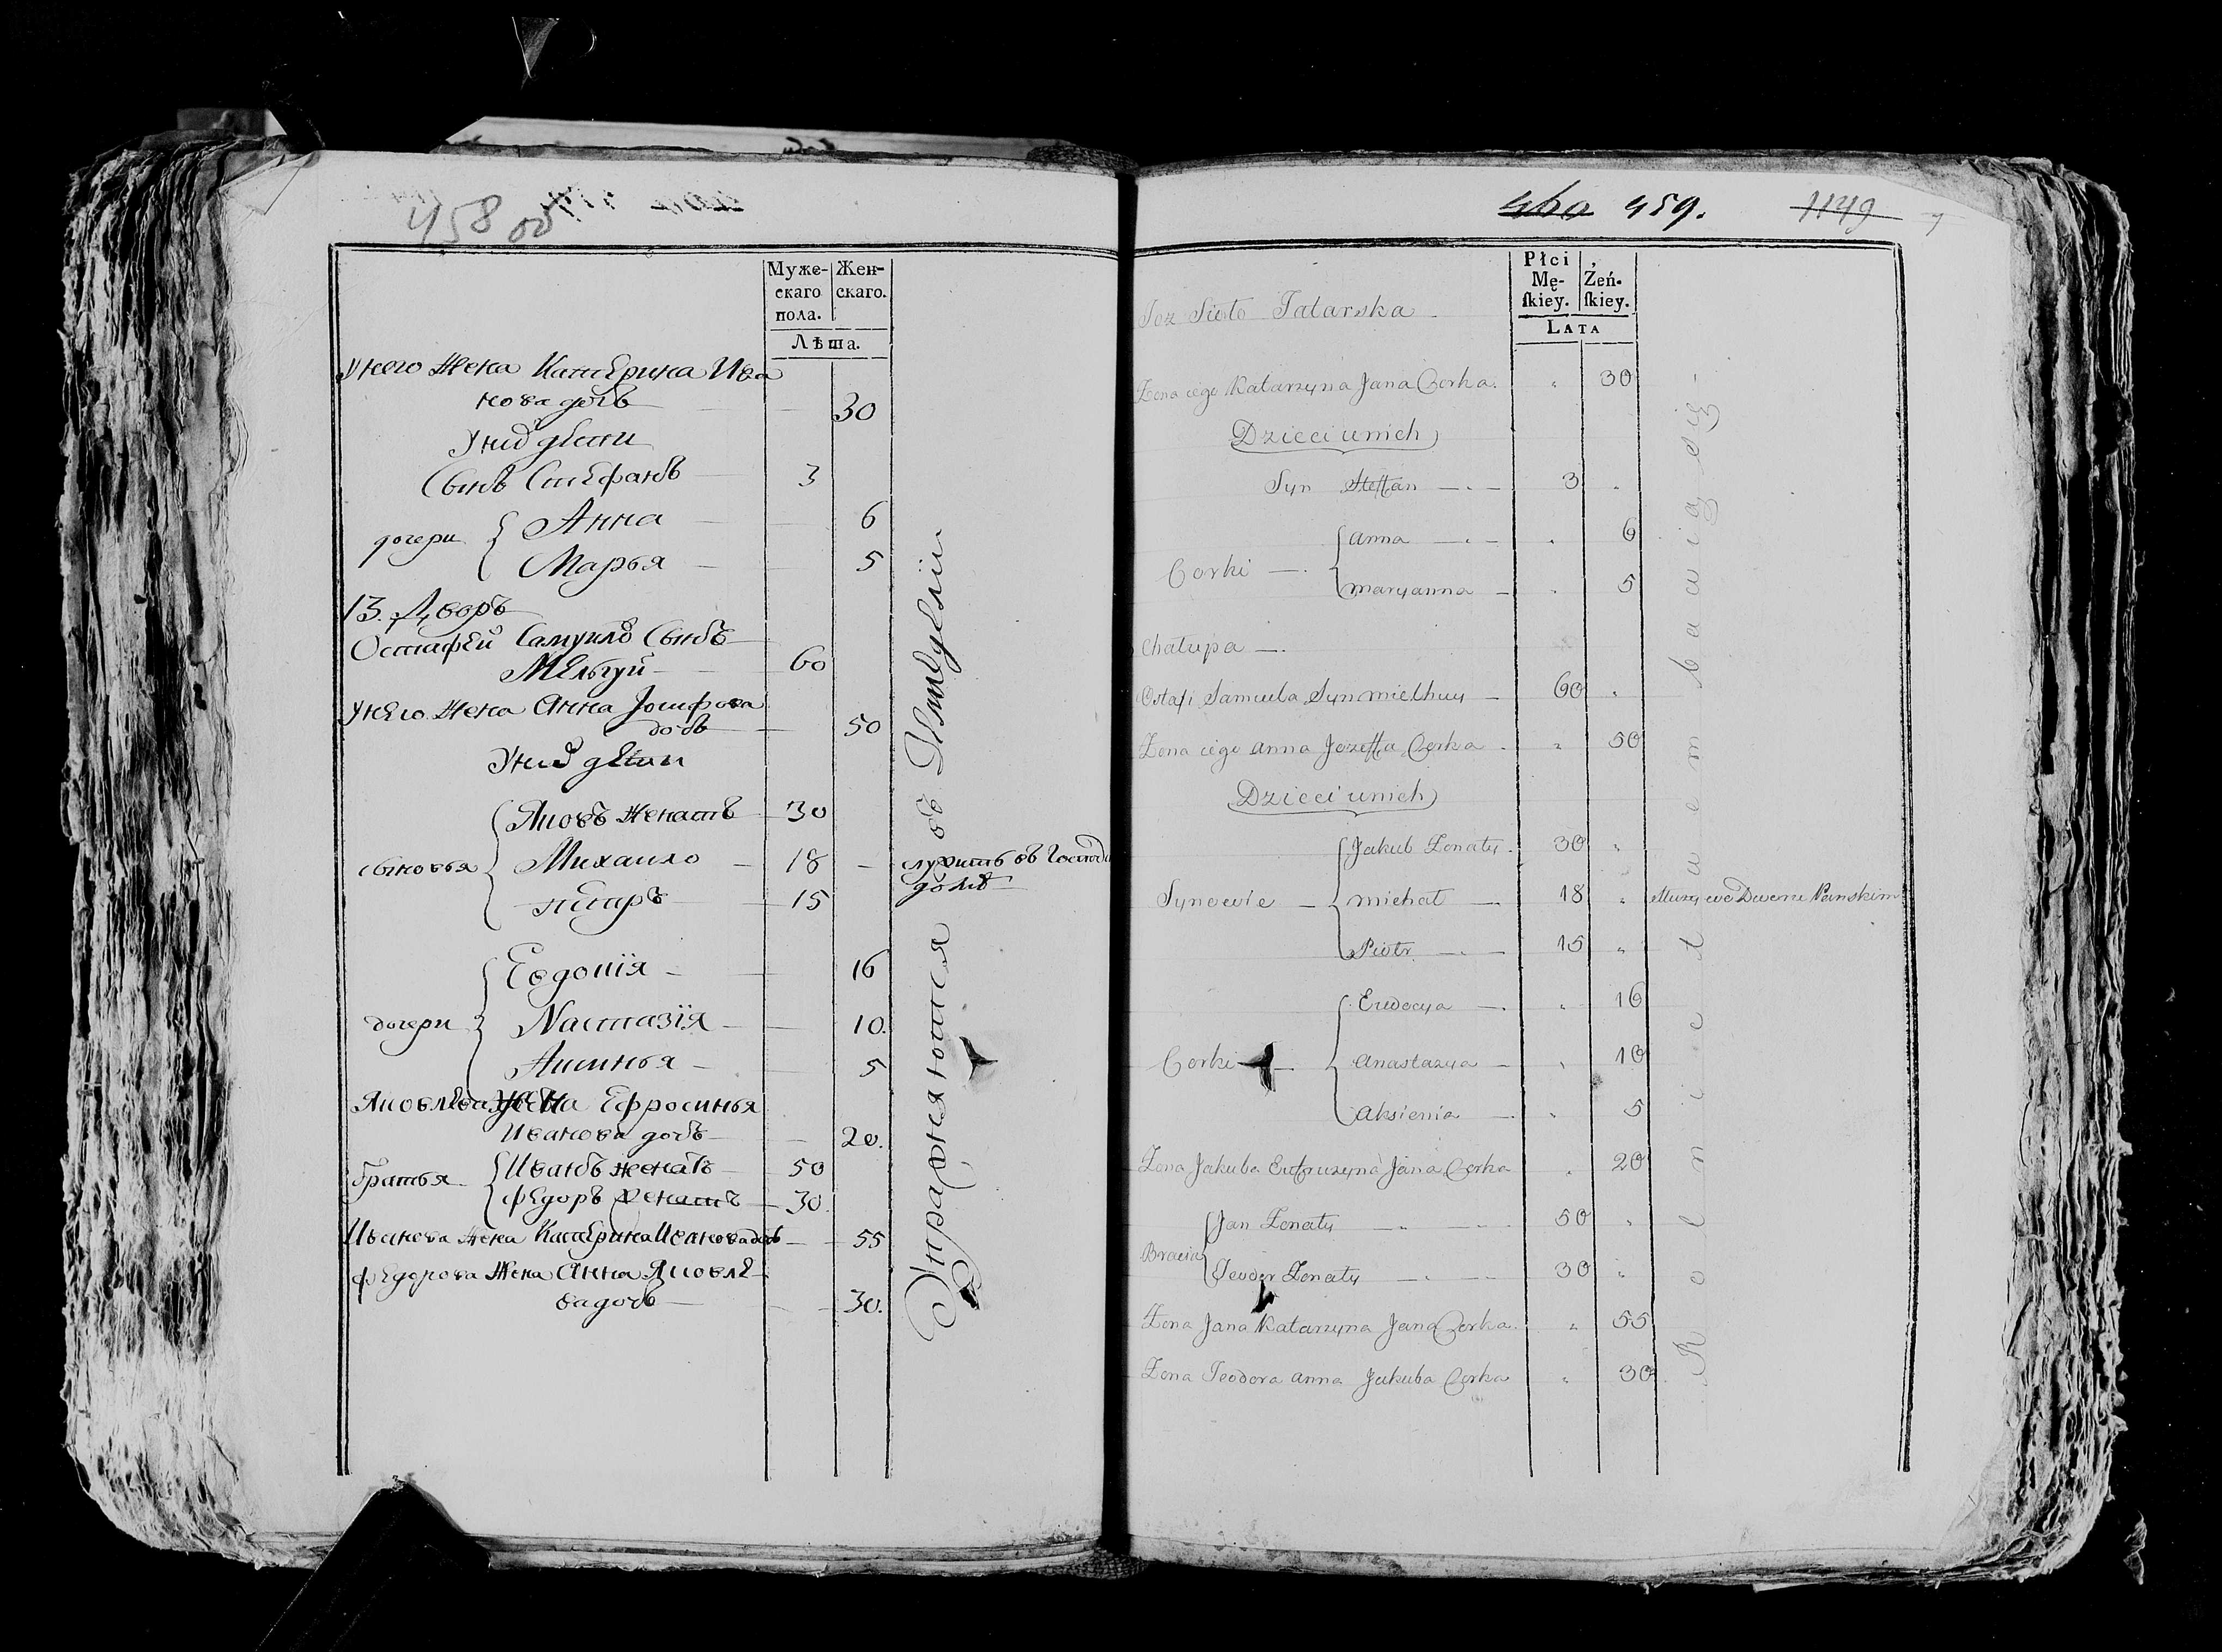 458 об
Муже-
скаго
пола.
Жен-
скаго.
Лѣта.
Унего жена Катерина Ива
нова дочь 30
Унихъ дети
Сынъ Стефанъ 3
дочери { Анна 6
Марья 5
13. Дворъ
Остафей Самуилъ Сынъ
Мелыуй 60
Унего жена Анна Іосифова
дочь 50
Унихъ дети
сыновья { Яковъ женатъ 30
Михаило 18 служитъ въ Господ
доме
Петръ 15
дочери { Евдокія 16
Настазія 10.
Аксинья 5
Яковлева жена Ефросинья
Иванова дочь 20.
братья { Иванъ женатъ 50
Федоръ женатъ 30.
Иванова жена Катерина Иванова дочь 55
Федорова жена Анна Яковле-
ва дочь 30.
Упражняются въ
460 459. 1149
Płci
Mę-
ſkiey.
Żeń-
ſkiey.
LATA
Toż Sioło Tatarska
Żona iego Katarzyna Jana Corka. " 30
Dzieci u nich
Syn Steffan 3 "
Corki { Anna " 6
Maryanna " 5
Chałupa
Ostafi Samuela Syn Mielhuy 60 "
Żona iego Anna Jozeffa Corka " 50
Dzieci u nich
Synowie { Jakub Żonaty 30 "
Michał 18 " służy we Dworze Panskim
Piotr 15 "
Corki { Ewdocya " 16
Anastazya " 10
Aksienia " 5
Żona Jakuba Eufruzyna Jana Corka " 20
Bracia { Jan Żonaty 50 "
Teodor Żonaty 30 "
Żona Jana Katarzyna Jana Corka. " 55
Żona Teodora Anna Jakuba Corka " 30
Rolnictwem bawią się